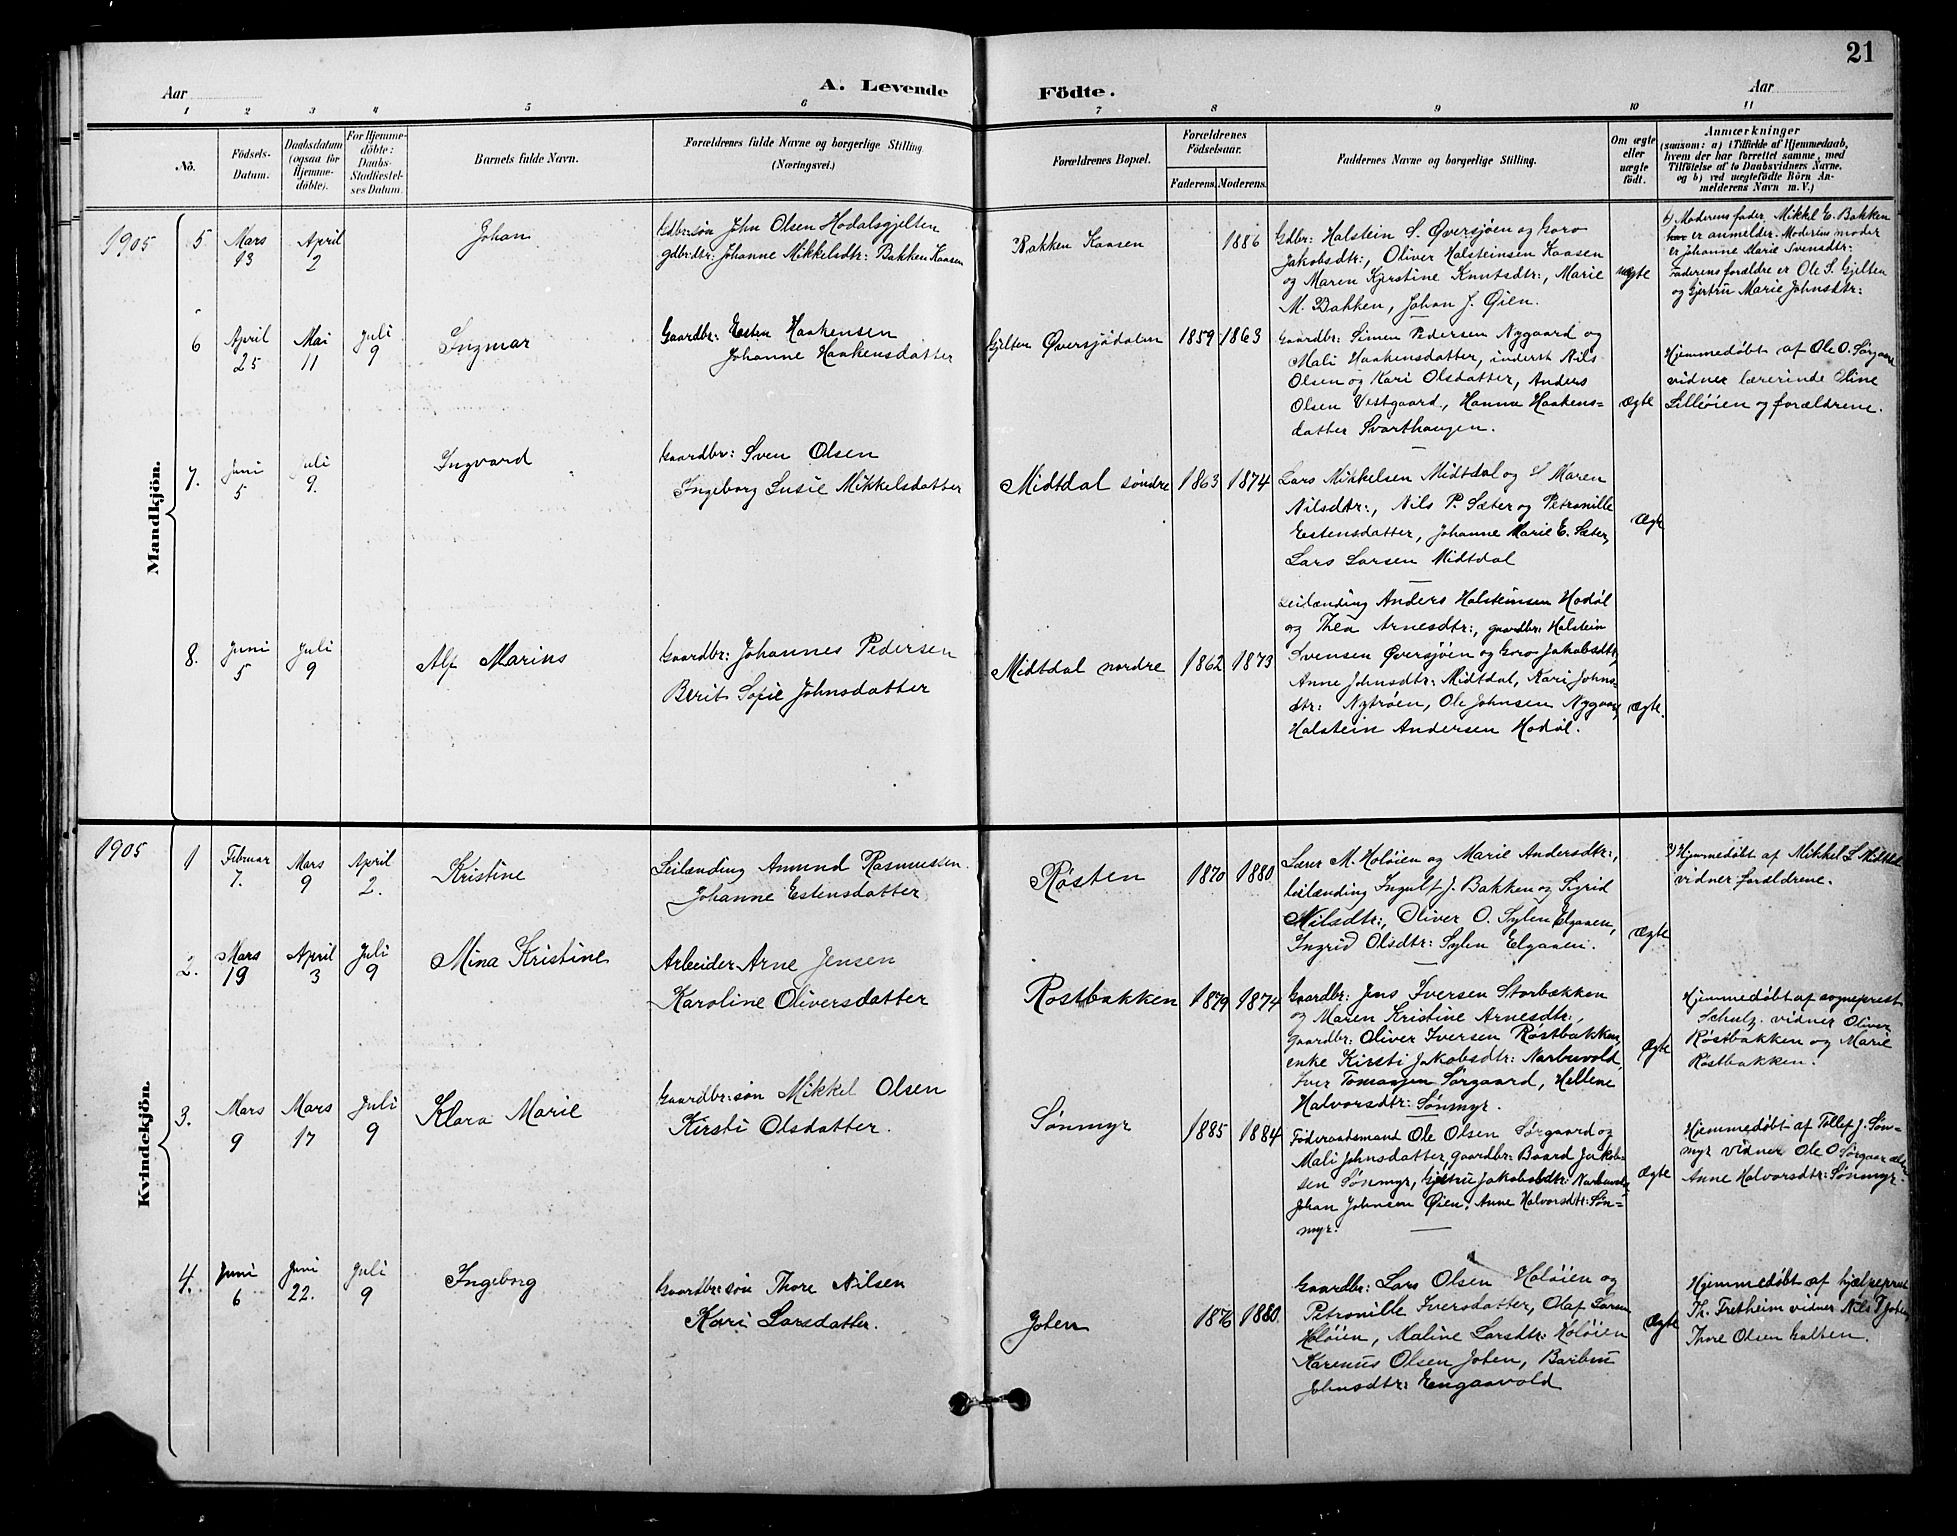 21
Aar
A. Levende Födte.
Aar
1 2 3 4 5 6 7 8 9 10 11
No.
Födsels-Datum.
Daabsdatum (ogsaa för Hjemme-döbte).
For Hjemme-döbte: Daabs-Stadfæstel-ses Datum.
Barnets fulde Navn.
Forældrenes fulde Navne og borgerlige Stilling
(Næringsvei.)
Forældrenes Bopæl.
Forældrenes Födselsaar.
Faderens. Moderens.
Faddernes Navne og borgerlige Stilling.
Om ægte eller uægte födt.
Anmærkninger
(saasom: a) i Tilfælde af Hjemmedaab,
hvem der har forrettet samme, med
Tilföielse af to Daabsvidners Navne.
og b) ved uægtefödte Börn An-
melderens Navn m. V.)
Mandkjön.
1905
5 Mars 13 April 2
Johan
Gdbr:søn John Olsen Hodalsgjelten
gdbr:dtr: Johanne Mikkelsdtr: Bakken Kaasen
Bakken Kaasen
1886
Gdbr: Halstein S. Øversjøen og Goro
Jakobsdtr:, Oliver Halsteinsen Kaasen
og Maren Kjerstine Knutsdtr:, Marie
M. Bakken, Johan J. Øien.
uægte
Moderens fader Mikkel E. Bakken
har er anmelder. Moderens moder
er Johanne Marie Svensdtr:
Faderens forældre er Ole S. Gjelten
og Gjertru Marie Johnsdtr:
6 April 25 Mai 11 Juli 9
Ingmar
Gaardbr: Esten Haakensen
Johanne Haakensdatter
Gjelten Øversjødalen
1859 1863
Gaardbr: Simen Pedersen Nygaard og
Mali Haakensdatter, inderst Nils
Olsen og Kari Olsdatter, Anders
Olsen Vestgaard, Hanna Haakens=
datter Svarthaugen.
ægte
Hjemmedøbt af Ole O. Sørgaard
vidner lærerinde Oline
Lilløien og forældrene.
7. Juni 5 Juli 9.
Ingvard
Gaardbr: Sven Olsen
Ingeborg Susie Mikkelsdatter
Midtdal søndre
1863 1874
Lars Mikkelsen Midtdal og Maren
Nilsdtr:, Nils P. Sæter og Petronille
Estensdatter, Johanne Marie E. Sæter,
Lars Larsen Midtdal
Ægte
8. Juni 5 Juli 9
Alf Marius
Gaardbr: Johannes Pedersen
Berit Sofie Johnsdatter
Midtdal nordre
1862 1873
Leilænding Anders Halsteinsen Hodøl
og Thea Arnesdtr:, gaardbr: Halstein
Svensen Øversjøen og Goro Jakobsdtr,
Anne Johnsdtr: Midtdal, Kari Johns=
dtr: Nytrøen, Ole Johnsen Nygaard,
Halstein Andersen Hodøl.
ægte.
Kvindekjön.
1905
1 Februar 7. Mars 9 April 2.
Kristine
Leilænding Amund Rasmussen.
Johanne Estensdatter
Røsten
1870 1880
Lærer M. Holøien og Marie Andersdtr:,
leilænding Ingulf J. Bakken og Sigrid
Nilsdtr:, Oliver O. Sylen Elgaaen,
Ingrid Olsdtr: Sylen Elgaaen.
Ægte
Hjemmedøbt af Mikkel S Midtdal
vidner forældrene.
2. Mars 19 April 3 Juli 9
Mina Kristine
Arbeider Arne Jensen
Karoline Oliversdatter
Rostbakken
1879 1874
Gaardbr: Jens Iversen Storbækken
og Maren Kristine Arnesdtr:,
gaardbr: Oliver Iversen Røstbakken,
enke Kirsti Jakobsdtr: Narbuvold,
Iver Sørgaard, Hellene
Halvorsdtr: Sønmyr.
Ægte
Hjemmedøbt af sogneprest
Schulz. vidner Oliver
Røstbakken og Marie
Røstbakken.
3. Mars 9 Mars 17 Juli 9
Klara Marie
Gaardbr:søn Mikkel Olsen
Kirsti Olsdatter.
Sønmyr
1885 1884
Føderaadsmand Ole Olsen Sørgaard og
Mali Johnsdatter, gaardbr: Baard Jakob=
sen Sønmyr, Gjertru Jakobsdtr: Narbuvold,
Johan Johnsen Øien, Anne Halvorsdtr: Søn=
myr.
Ægte
Hjemmedøbt af Tollef J. Søn=
myr vidner Ole O Sørgaard
Anne Halvorsdtr: Sønmyr.
4. Juni 6 Juni 22. Juli 9
Ingeborg
Gaardbr:søn Thore Nilsen
Kari Larsdatter.
Joten
1876 1880.
Gaardbr: Lars Olsen Holøien og
Petronille Iversdatter, Olaf Larsen
Holøien, Maline Larsdtr: Holøien
Karenus Olsen Joten, Barbru
Johnsdtr: Engaavold
Ægte
Hjemmedøbt af hjælpeprest
Th. Fretheim vidner Nils T Joten,
Thore Olsen Galten.